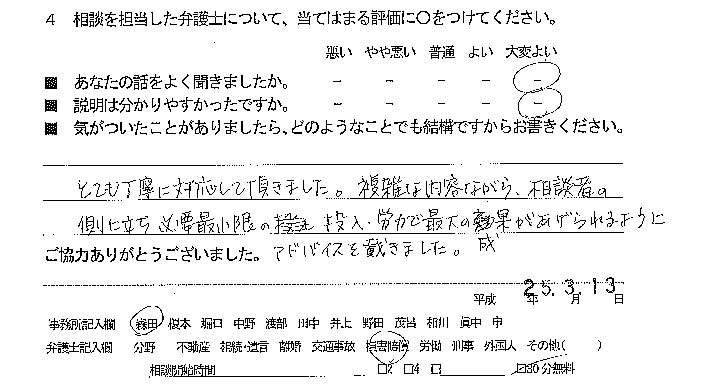 4 相談を担当した弁護士について、当てはまる評価に○をつけてください。
悪い やや悪い 普通 よい 大変よい
あなたの話をよく聞きましたか。 － － － － －
説明は分かりやすかったですか。 － － － － －
気がついたことがありましたら、どのようなことでも結構ですからお書きください。
とても丁寧に対応して頂きました。複雑な内容ながら、相談者の
側に立ち必要最小限の 投入・労力で最大の成果があげられるように
アドバイスを戴きました。
ご協力ありがとうございました。
平成25年3月13日
事務所記入欄 森田 坂本 堀口 中野 渡部 田中 井上 野田 茂呂 相川 眞中 市
弁護士記入欄 分野 不動産 相続・遺言 離婚 交通事故 損害賠償 労働 刑事 外国人 その他( )
相談開始時間 □2 □4 □ □30分無料